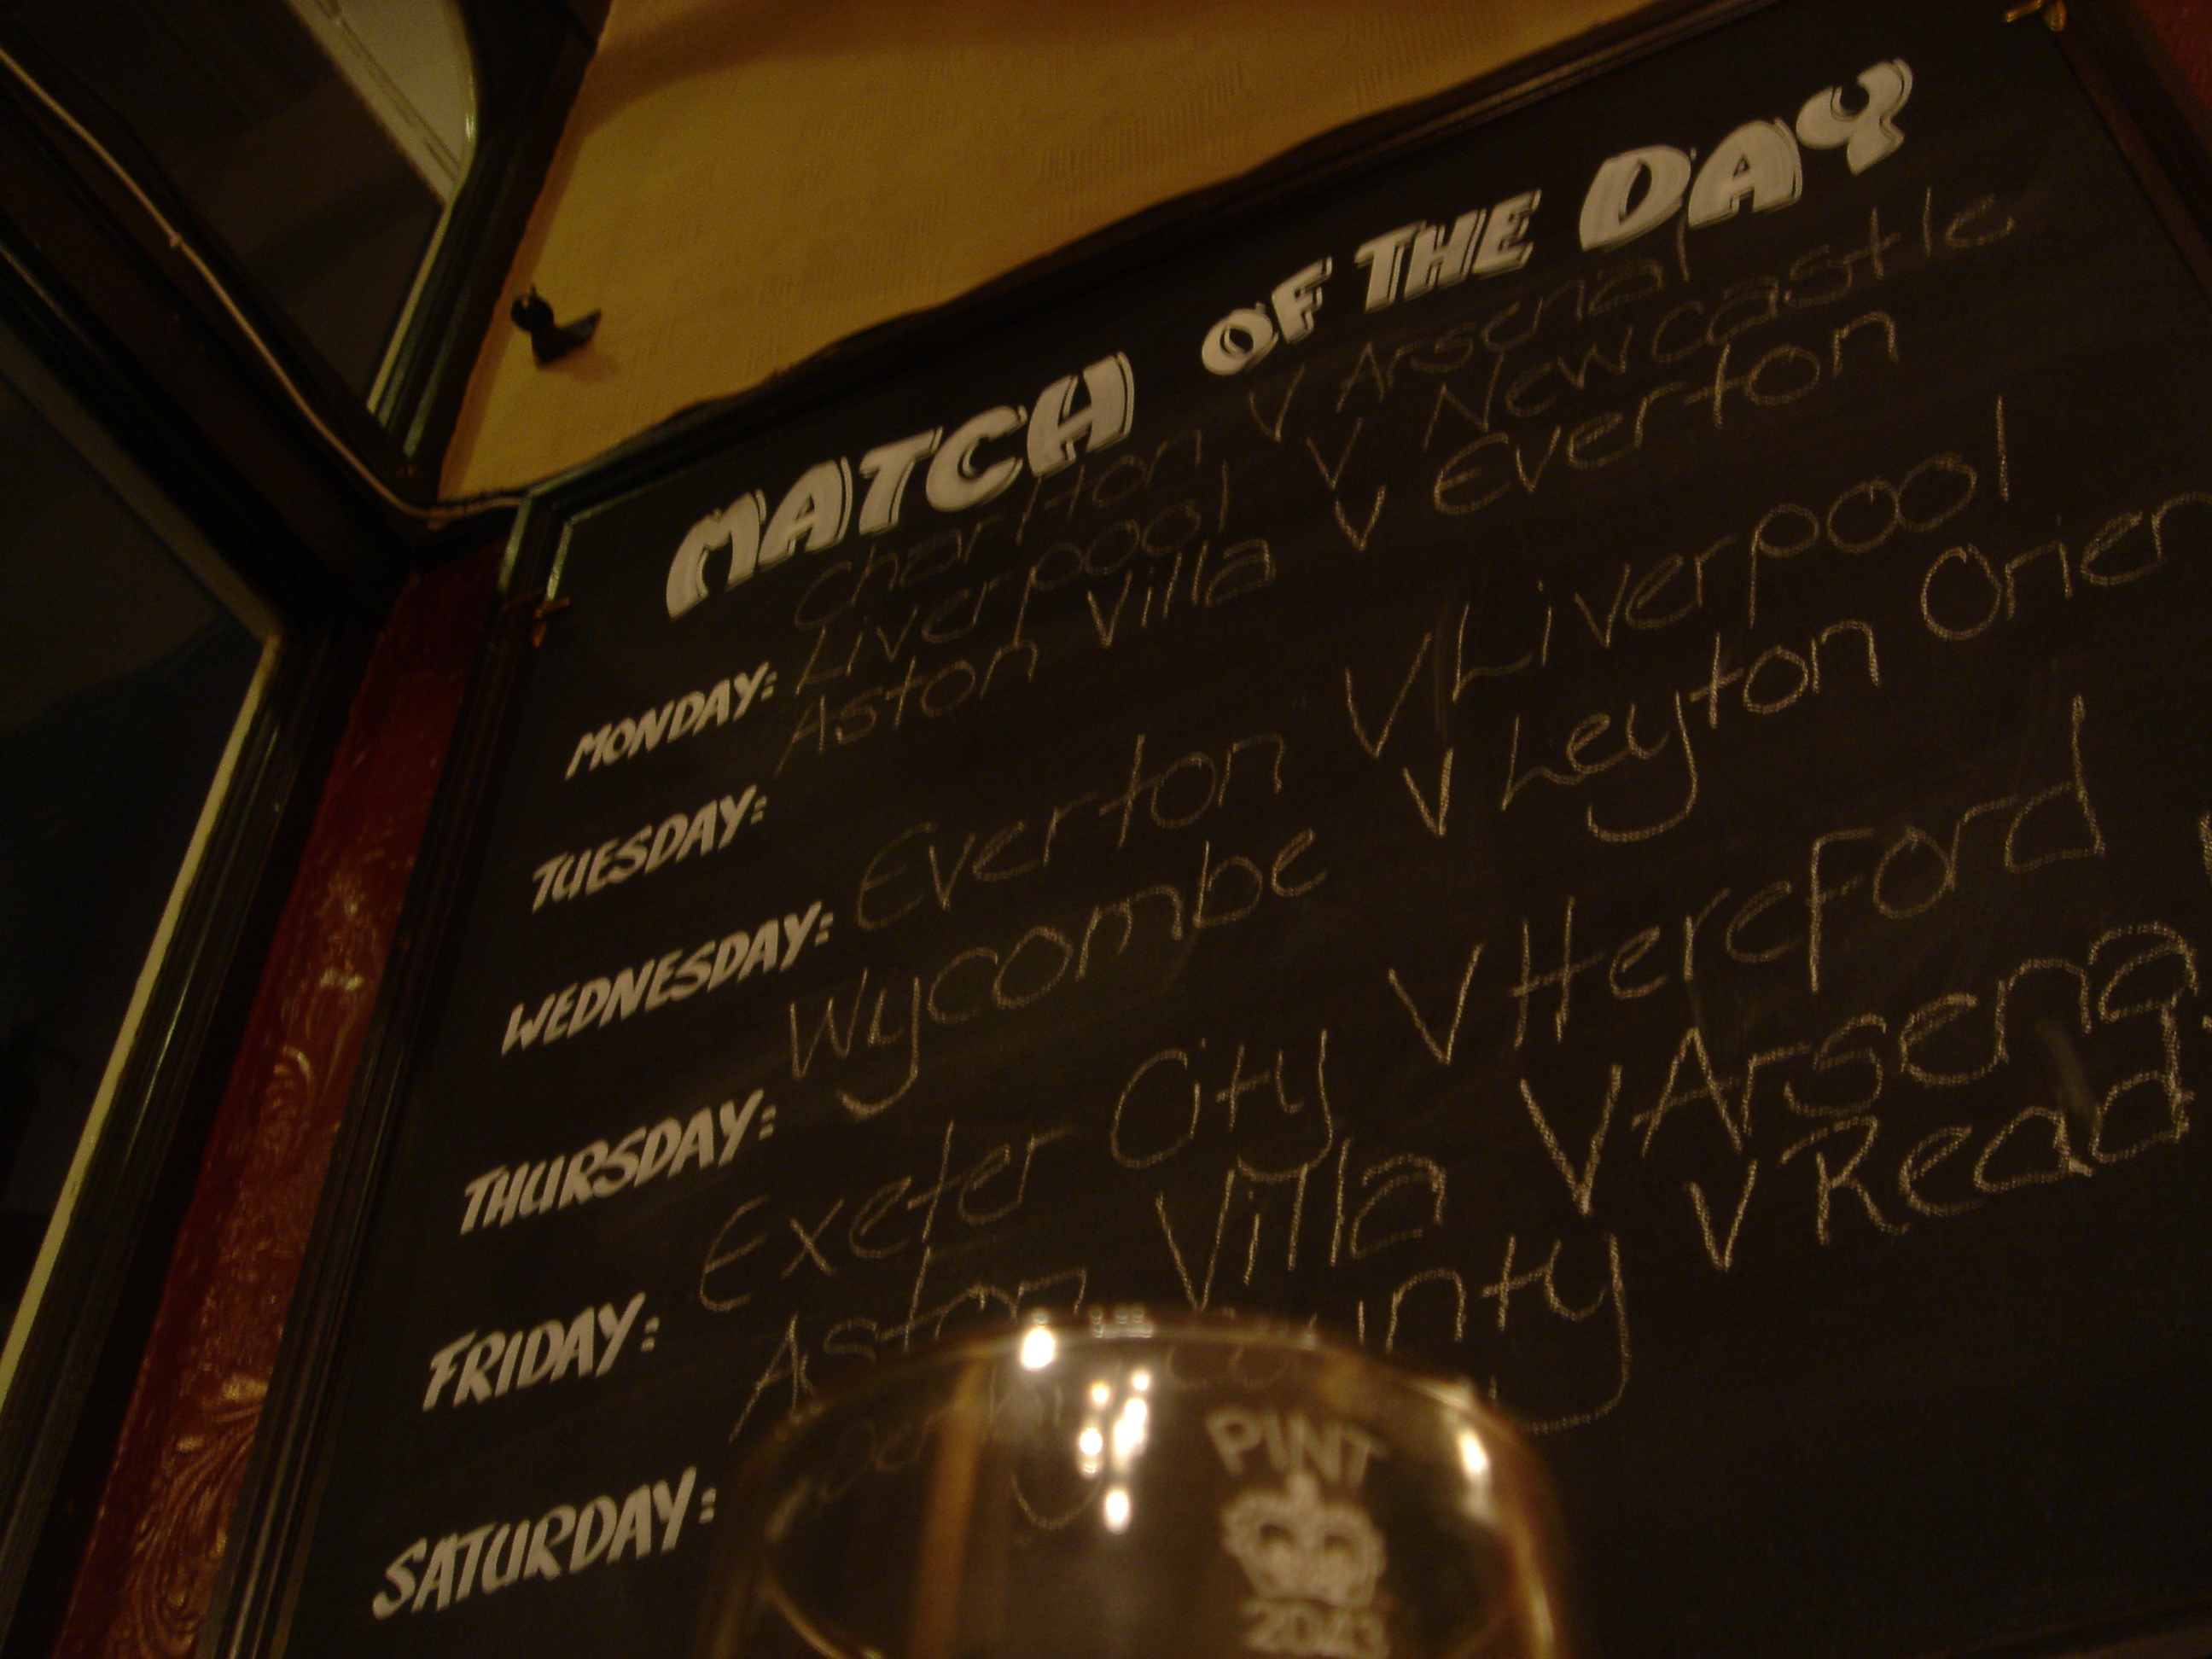 MATCH OF THE DAY
Charlton V Arsenal
Liverpool V Newcastle
MONDAY: Aston Villa V Everton
TUESDAY:
Everton V Liverpool
WEDNESDAY: Wycombe V Leyton Orien
THURSDAY:
Exeter City V Hereford
FRIDAY: Aston Villa V Arsena
Derby County V Read
SATURDAY:
PINT
2043